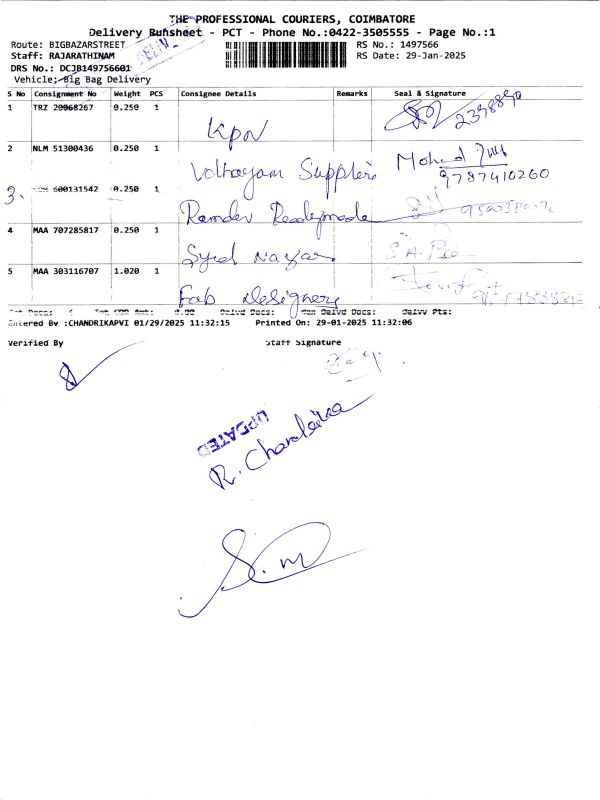 THE PROFESSIONAL COURIERS, COIMBATORE
Delivery Runsheet - PCT - Phone No.:0422-3505555 - Page No.:1
Route: BIGBAZARSTREET
Staff: RAJARATHINAM
DRS No.: DCJB149756601
Vehicle: Big Bag Delivery
RS No.: 1497566
RS Date: 29-Jan-2025
S No Consignment No Weight PCS Consignee Details Remarks Seal & Signature
1 TRZ 20068267 0.250 1 KPN
2 NLM 51300436 0.250 1 Suppliers Mohd 9787410260
3. 600131542 0.250 1 Ramdev Readymade
4 MAA 707285817 0.250 1 Syed Nazar S.A.
5 MAA 303116707 1.020 1 Fab Designers
Tot Docs: Tot COD Amt: 0.00 Delvd Docs: Non Delvd Docs: Delvv Pts:
Entered By :CHANDRIKAPVI 01/29/2025 11:32:15 Printed On: 29-01-2025 11:32:06
Verified By Staff Signature
UPDATED
R. Chandrika
S.M